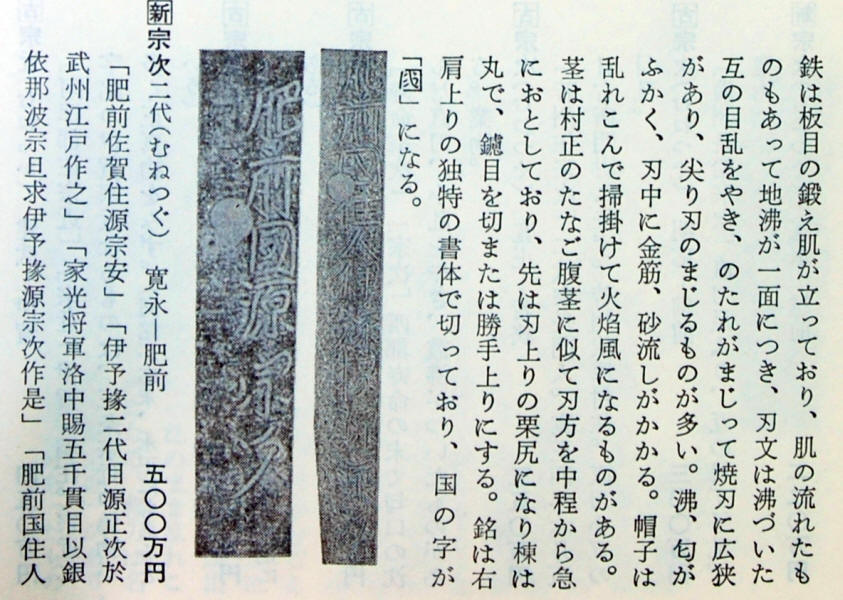 鉄は板目の鍛え肌が立っており、肌の流れたも
のもあって地沸が一面につき、刃文は沸づいた
互の目乱をやき、のたれがまじって焼刃に広狭
があり、尖り刃のまじるものが多い。沸、匂が
ふかく、刃中に金筋、砂流しがかかる。帽子は
乱れこんで掃掛けて火焰風になるものがある。
茎は村正のたなご腹茎に似て刃方を中程から急
におとしており、先は刃上りの栗尻になり棟は
丸で、鑢目を切または勝手上りにする。銘は右
肩上りの独特の書体で切っており、国の字が
「圀」になる。
肥前國
肥前國源宗次
新 宗次二代（むねつぐ） 寛永―肥前 五〇〇万円
「肥前佐賀住源宗安」「伊予掾二代目源正次於
武州江戸作之」「家光将軍洛中賜五千貫目以銀
依那波宗旦求伊予掾源宗次作是」「肥前国住人